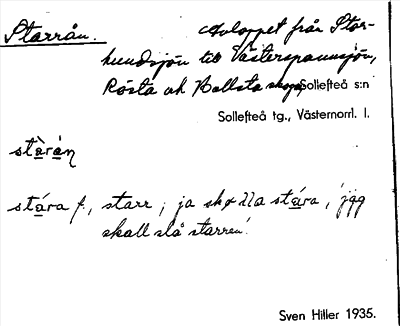 Starrån.
Avloppet från Stor-
hundsjön till Västerspannsjön,
Rösta och Hallsta skoga, Sollefteå s:n
Sollefteå tg., Västernorrl. l.
stàrán
stára f., starr; ja skølla stára, 'jag
skall slå starren'.
Sven Hiller 1935.